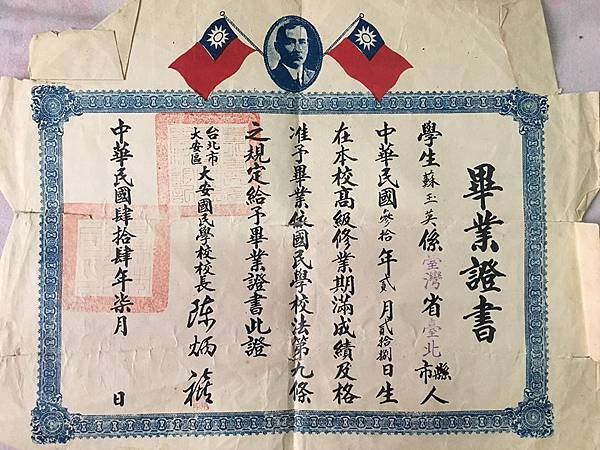 畢業證書
學生蘇玉英係臺灣省臺北縣市人
中華民國參拾年貳月貳拾捌日生
在本校高級修業期滿成績及格
准予畢業依國民學校法第九條
之規定給予畢業證書此證
台北市大安區大安國民學校校長陳炳
中華民國肆拾肆年柒月 日